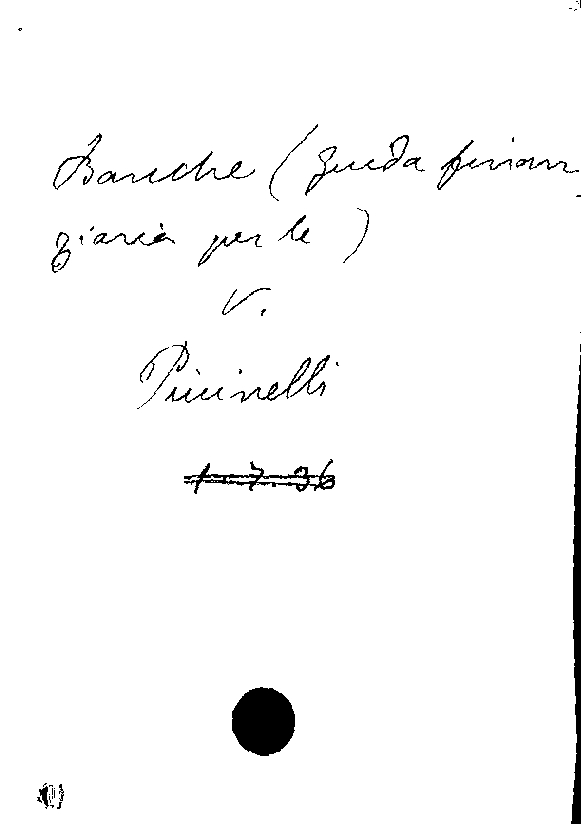 Banche (guida finan
ziaria per le)
V.
Piccinelli
1.7.36